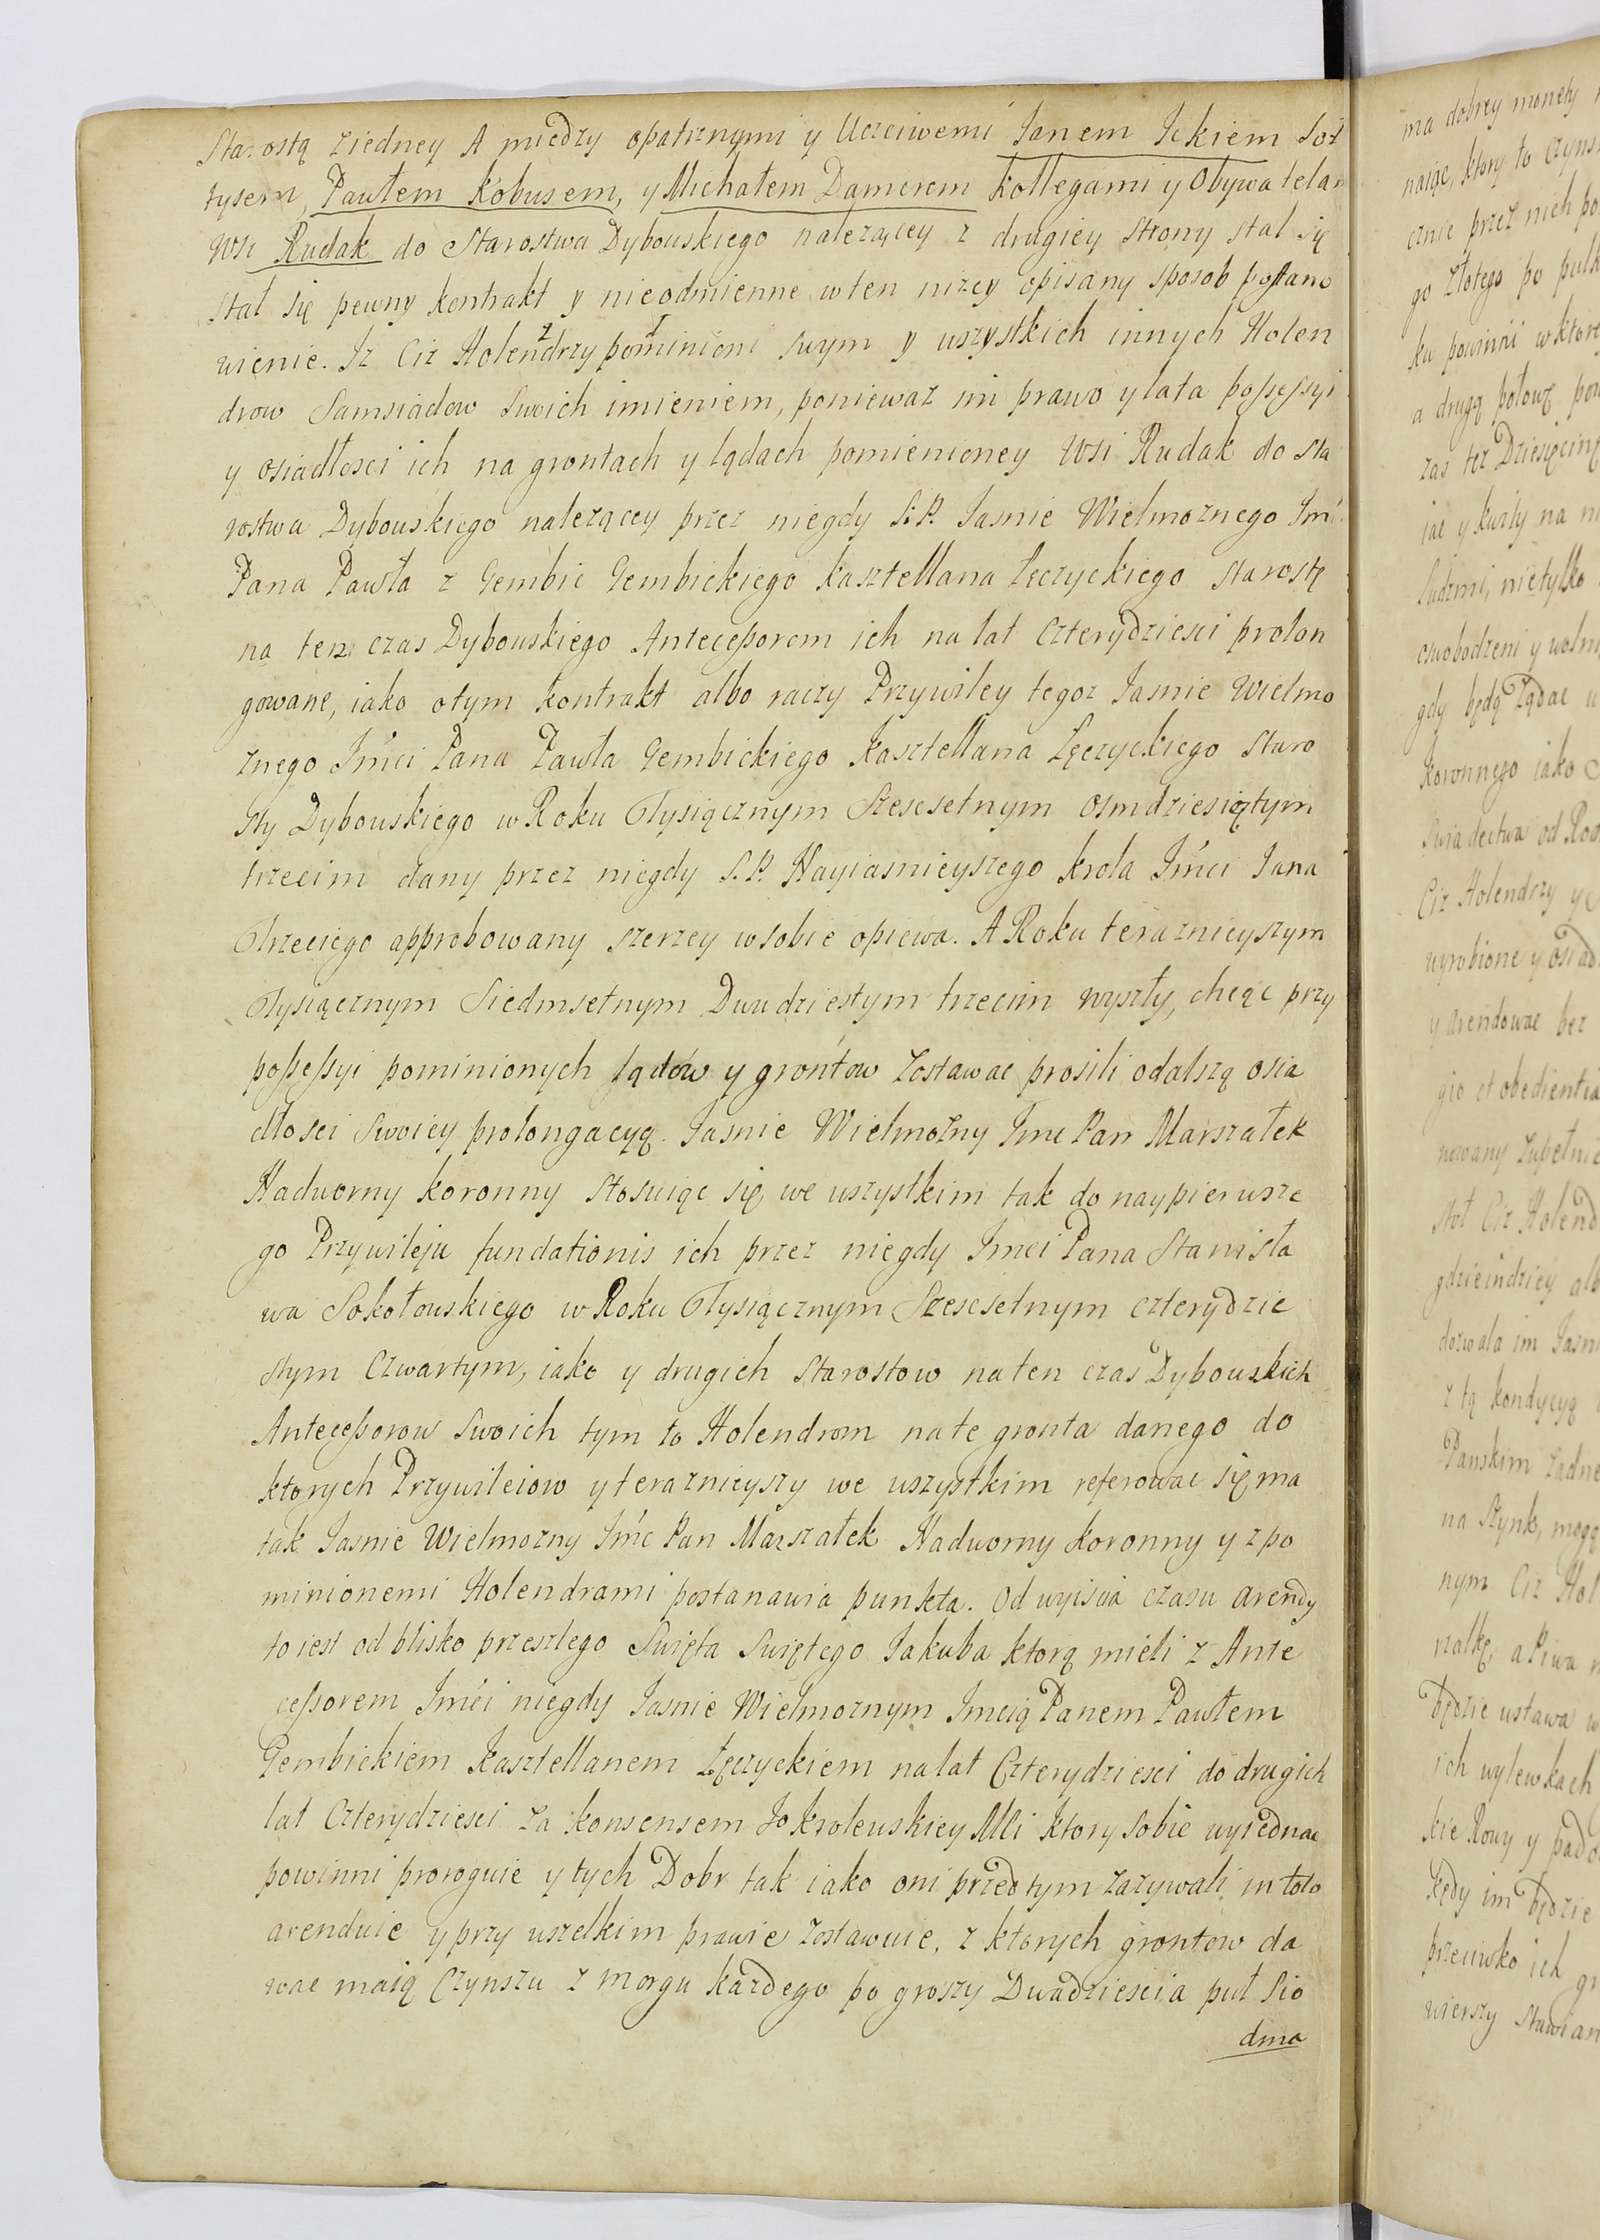 Starostą ziedney A między opatrznymi y Uczciwemi Janem Jckiem Soł
tysem, Pawłem Kobusem, y Michałem Damerem Kollegami y Obywatelam
Wsi Rudak do Starostwa Dybowskiego nalezącey z drugiey strony stal się
stal się pewny kontrakt y nieodmienne wten nizey opisany sposob postano
wienie. Iz Ciz Holendrzy pominieni swym y wszystkich innych Holen
drow Samsiadow Swoich imieniem, poniewaz im prawo y lata possessyi
y osiadłosci ich na grontach y lądach pomienioney Wsi Rudak do Sta
rostwa Dybowskiego nalezącey przez niegdy S.P. Jasnie Wielmoznego Jmć.
Pana Pawła z Gembic Gembickiego Kasztellana Łęczyckiego Starostę
na ten czas Dybowskiego Antecessorem ich na lat Czterydziesci prolon
gowane, iako otym kontrakt albo raczy Przywiley tegoz Jasnie Wielmo
znego Jmći Pana Pawła Gembickiego Kasztellana Łęczyckiego Staro
sty Dybowskiego w Roku Tysiącznym Szescsetnym Osmdziesiątym
trzecim dany przez niegdy S.P. Nayiasnieyszego Krola Jmći Jana
Trzeciego approbowany szerzey wsobie opiewa. A Roku teraznieyszym
Tysiącznym Siedmsetnym Dwudziestym trzecim wyszły, chcąc przy
possessyi pominionych lądow y grontow zostawac prosili odalszą osia
dłosci Swoiey prolongacyą. Jasnie Wielmozny Jmc Pan Marszałek
Nadworny Koronny stosuiąc się we wszystkim tak do naypierwsze
go Przywileju fundationis ich przez niegdy Jmci Pana Stanisła
wa Sokołowskiego w Roku Tysiącznym Szescsetnym czterydzie
stym Czwartym, iako y drugich Starostow na ten czas Dybowskich
Antecessorow Swoich tym to Holendrom na te gronta danego do
ktorych Przywileiow y teraznieyszy we wszystkim referowac się ma
tak Jasnie Wielmozny Jmć Pan Marszałek Nadworny Koronny y z po
minionemi Holendrami postanawia punkta. Od wyiscia czasu arendy
to iest od blisko przeszlego Swięta Swiętego Jakuba ktorą mieli z Ante
cessorem Jmći niegdy Jasnie Wielmoznym Jmcią Panem Pawłem
Gembickiem Kasztellanem Łęczyckiem na lat Czterydziesci do drugich
lat Czterydziesci za konsensem Jo Krolewskiey Mći ktory Sobie wyiednac
powinni proroguie y tych Dobr tak iako oni przedtym zazywali in toto
arenduie y przy wszelkim prawie zostawuie, z ktorych grontow da
wac maią Czynszu z morgu kazdego po groszy Dwadziescia puł Sio
dma
ma dobrey monety
naiąc, ktory to czyns
cznie przez nich po
go Złotego po puł
ku powinni w ktore
a drugą połowę pow
zas tez Dziesięcinę
iac y kurły na
Ludzmi, nietylko
oswobodzeni y wolni
gdy będą Ządac
Koronnego iako
Swiadectwa od
Ciz Holendrzy y
wyrobione y osiad
y arendowac bez
gio et obedientia
nowany zupełnie
stol Ciz Holend
gdzieindziey alb
dozwala im Jasn
z tą kondycyą
Panskim zadne
na Szynk, mogą
nym Ciz Hol
rzałkę, a Piwa
będzie ustawa w
ich wylewkach
kie Rowy y pado
kędy im będzie
przeciwko ich gr
wierszy stawian